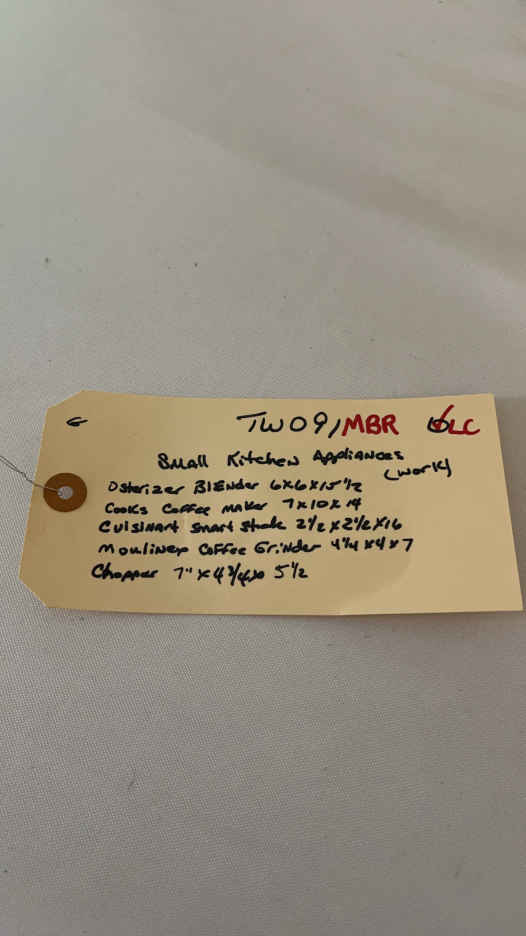 G
TW091 MBR LC
Small Kitchen Appliances
(work)
Osterizer Blender 6x6x15 1/2
Cooks Coffee maker 7x10x14
Cuisinart Smart Stick 2 1/2 x 2 1/2 x 16
Moulinex Coffee Grinder 4 1/4 x 4 x 7
Chopper 7" x 4 3/4 x 5 1/2